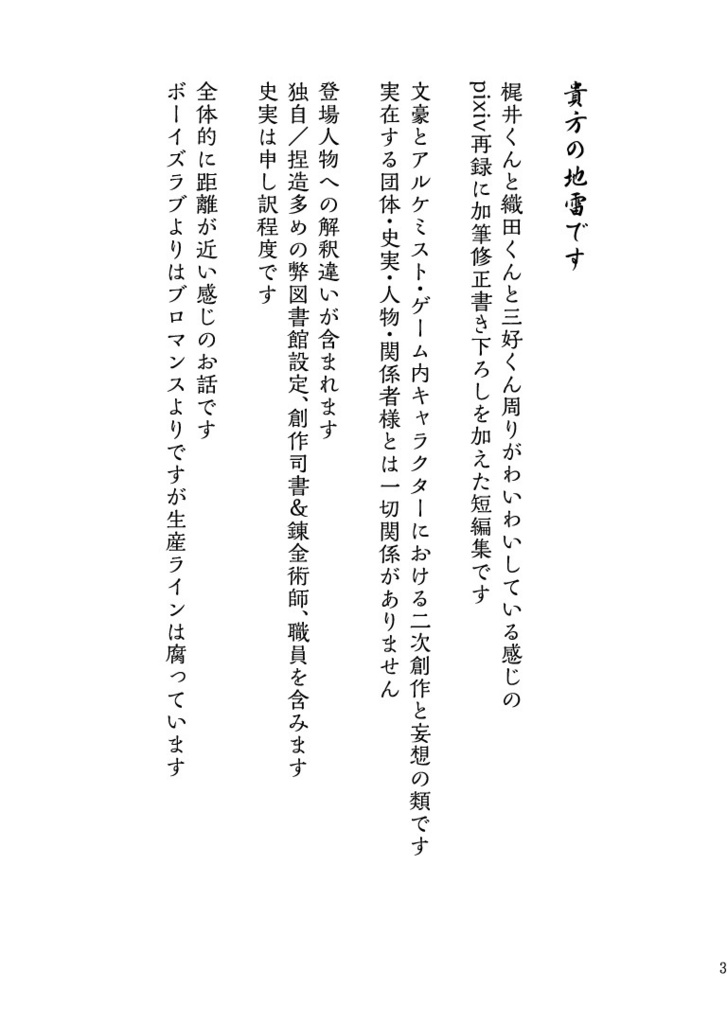 貴方の地雷です
梶井くんと織田くんと三好くん周りがわいわいしている感じの
pixiv再録に加筆修正書き下ろしを加えた短編集です
文豪とアルケミスト・ゲーム内キャラクターにおける二次創作と妄想の類です
実在する団体・史実・人物・関係者様とは一切関係がありません
登場人物への解釈違いが含まれます
独自／捏造多めの弊図書館設定、創作司書＆錬金術師、職員を含みます
史実は申し訳程度です
全体的に距離が近い感じのお話です
ボーイズラブよりはブロマンスよりですが生産ラインは腐っています
3